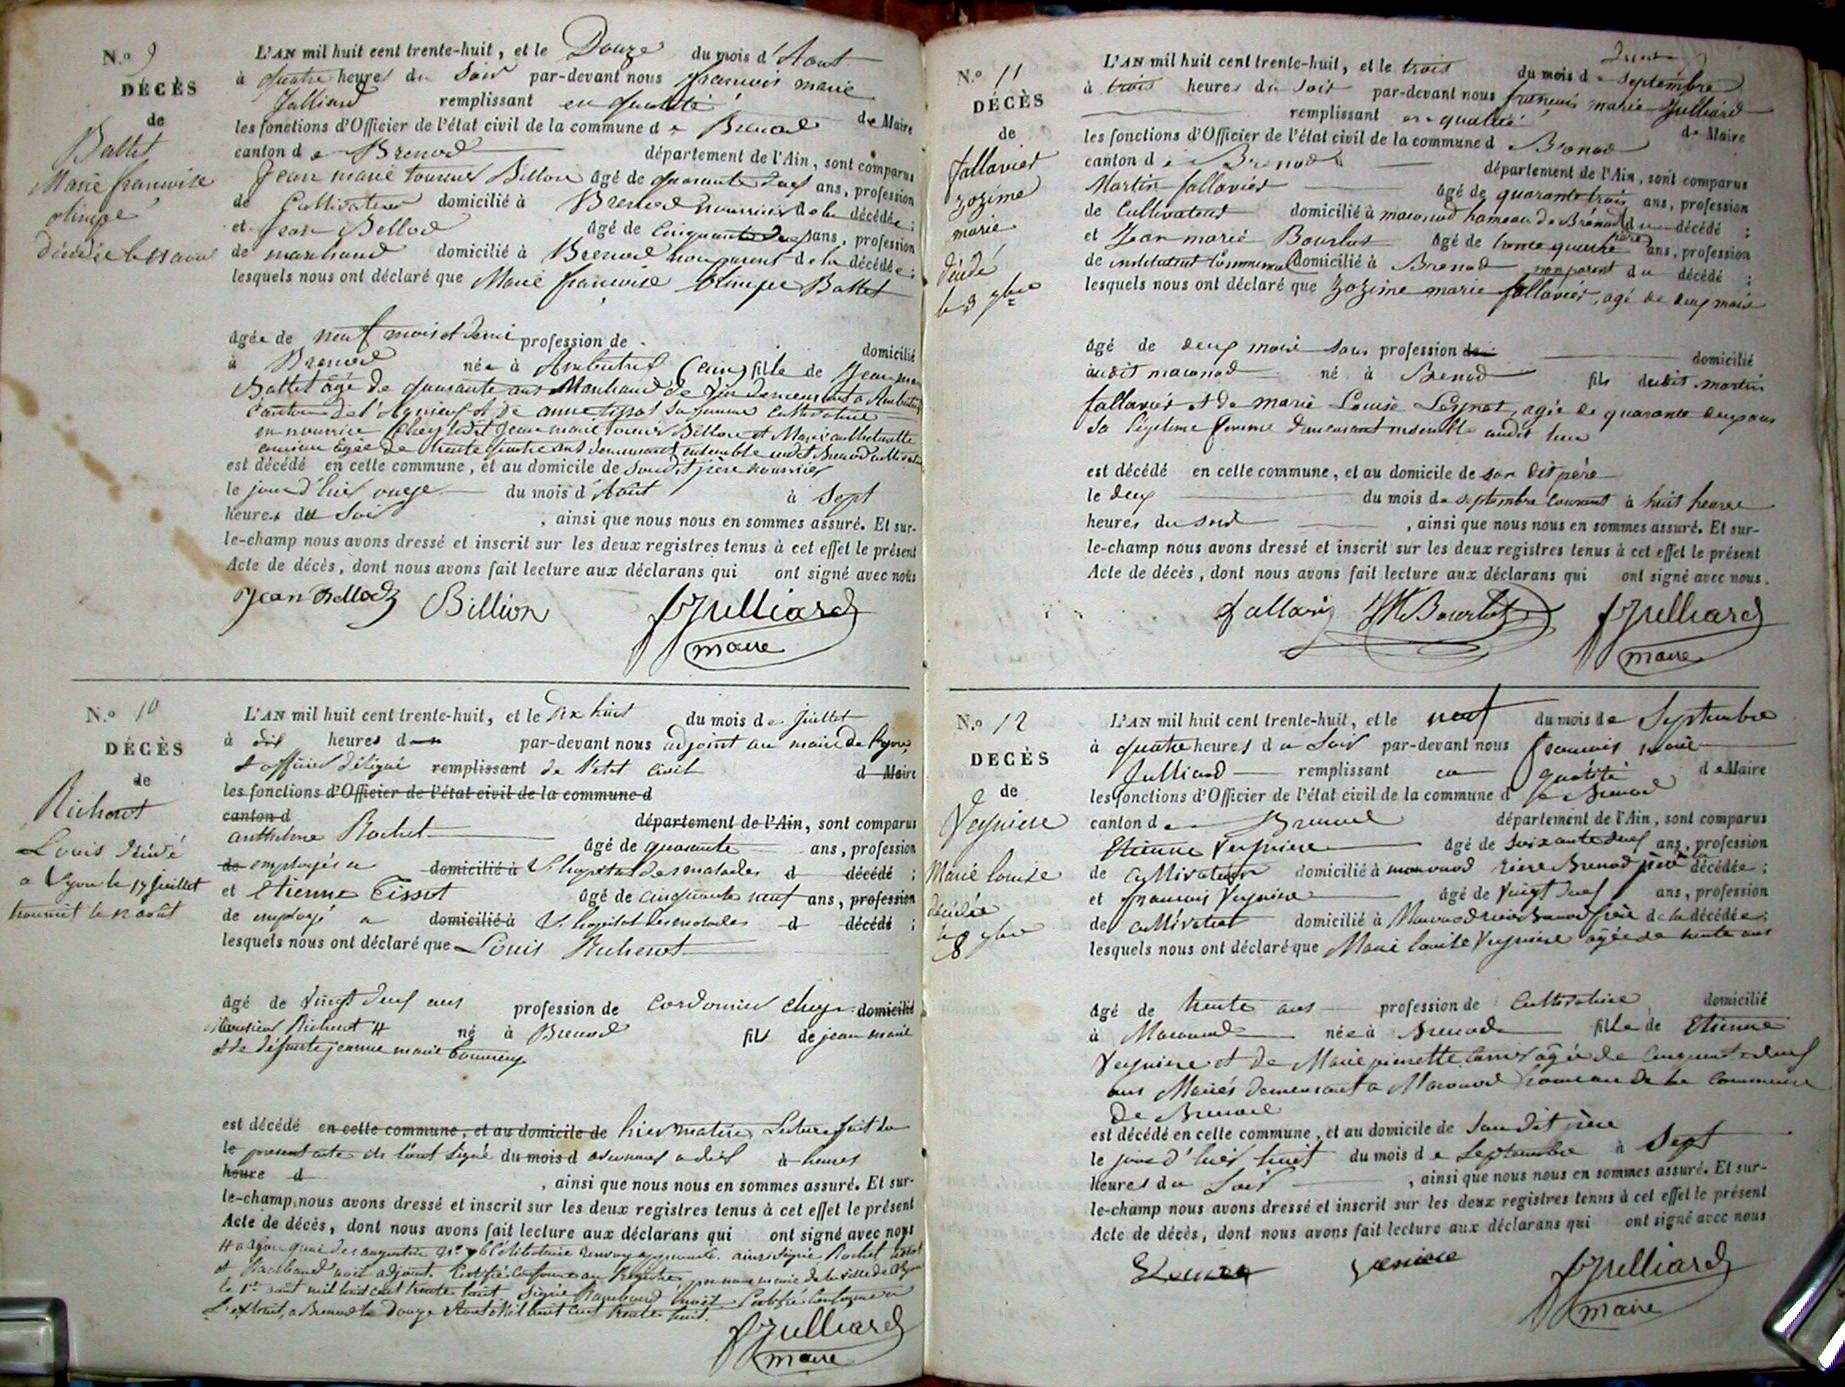 N.o 9
DÉCÈS
de
Ballet
Marie françoise
olimpe
Décédée le 11 aout
L'AN mil huit cent trente-huit, et le Douze du mois d'Aout
à quatre heures du Soir par-devant nous françois marie
Julliard remplissant en qualité de Maire
les fonctions d'Officier de l'état civil de la commune de Brenod
canton de Brenod département de l'Ain, sont comparus
Jean marie tournier Billion âgé de quarante neuf ans, profession
de Cultivateur domicilié à Brenod nourricier de la décédée;
et jean Bellod âgé de cinquante deux ans, profession
de marchand domicilié à Brenod non parent de la décédée;
lesquels nous ont déclaré que Marie françoise olimpe Ballet
âgée de neuf mois et demi profession de domicilié
à Brenod née à Ambutrix (ain) fille de Jean
Ballet âgé de quarante ans Marchand de vin demeurant a Ambutrix
canton de l'agnieu et de anne tissot sa femme cultivatrice
en nourrice chez ledit Jean marie tournier Billion et Marie antoinette
âgée de trente quatre ans demeurant ensemble audit Brenod
est décédé en cette commune, et au domicile de son dit père nourricier
le jour d'hier onze du mois d'Aout à sept
heures du Soir, ainsi que nous nous en sommes assuré. Et sur-
le-champ nous avons dressé et inscrit sur les deux registres tenus à cet effet le présent
Acte de décès, dont nous avons fait lecture aux déclarans qui ont signé avec nous
Jean Bellod Billion Julliard
maire
N.o 10
DÉCÈS
de
Richerot
Louis décédé
a Lyon le 17 juillet
transmit le 12 août
L'AN mil huit cent trente-huit, et le Dix huit du mois de Juillet
à dix heures d par-devant nous adjoint au maire de Lyon,
et officier délégué remplissant de l'etat civil d Maire
les fonctions d'Officier de l'état civil de la commune d
canton d département de l'Ain, sont comparus
anthelme Rochet âgé de quarante ans, profession
de employés a domicilié à L'hopital des malades d décédé;
et Etienne Tissot âgé de cinquante neuf ans, profession
de employé a domicilié à L'hopital des malades d décédé;
lesquels nous ont déclaré que Louis Richerot
âgé de vingt deux ans profession de cordonnier chez domicilié
Monsieur Richerot # né à Brenod fils de jean marie
et de défunte jeanne marie
est décédé en cette commune, et au domicile de hier matin, Lecture fait du
le present acte ils l'ont signé du mois d à heures
heure d, ainsi que nous nous en sommes assuré. Et sur-
le-champ nous avons dressé et inscrit sur les deux registres tenus à cet effet le présent
Acte de décès, dont nous avons fait lecture aux déclarans qui ont signé avec nous
# a Lyon quai des augustins n.o célibataire renvoy approuvé. ainsi signé Rochet tissot
et adjoint. Certifié conforme au Registre par nous maire de la ville de Lyon
le 1er aout mil huit cent trente huit Signé Certifié conforme a
L'extrait, a Brenod le Douze Aout mil huit cent trente huit.
Julliard
maire
N.o 11
DÉCÈS
de
fallavier
zozime
marie
Décédé
le 3 7bre
L'AN mil huit cent trente-huit, et le trois du mois de septembre
à trois heures du soir par-devant nous françois marie Julliard
remplissant en qualité de Maire
les fonctions d'Officier de l'état civil de la commune d Brenod
canton de Brenod département de l'Ain, sont comparus
Martin fallavier âgé de quarante trois ans, profession
de Cultivateur domicilié à maconod hameau de Brénod père du décédé;
et Jean marie Bourlot âgé de trente quatre ans, profession
de instituteur communal domicilié à Brenod non parent du décédé;
lesquels nous ont déclaré que zozime marie fallavier, agé de deux mois
âgé de deux mois sans profession de domicilié
audit maconod né à Brenod fils dudit martin
fallavier et de marie Louise Leynat, agée de quarante deux ans
sa légitime femme demeurant ensemble audit lieu
est décédé en cette commune, et au domicile de son dit père
le deux du mois de septembre courant à huit heures
heures du soir, ainsi que nous nous en sommes assuré. Et sur-
le-champ nous avons dressé et inscrit sur les deux registres tenus à cet effet le présent
Acte de décès, dont nous avons fait lecture aux déclarans qui ont signé avec nous.
fallavier JM Bourlot Julliard
maire
N.o 12
DÉCÈS
de
Veyniere
Marie louise
décédée
le 8 7bre
L'AN mil huit cent trente-huit, et le neuf du mois de Septembre
à quatre heures du Soir par-devant nous françois marie
Julliard remplissant en qualité de Maire
les fonctions d'Officier de l'état civil de la commune d de Brenod
canton de Brenod département de l'Ain, sont comparus
Etienne Veyniere âgé de soixante deux ans, profession
de cultivateur domicilié à maconod rière Brenod père de la décédée;
et françois Veyniere âgé de vingt deux ans, profession
de cultivateur domicilié à Maconod rière Brenod frère de la décédée;
lesquels nous ont déclaré que Marie louise Veyniere agée de trente ans
âgé de trente ans profession de Cultivatrice domicilié
à Maconod née à Brenod fille de Etienne
Veyniere et de Marie pierrette âgée de cinquante deux
ans Mariés demeurant a Maconod hameau de la Commune
De Brenod
est décédé en cette commune, et au domicile de Son dit père
le jour d'hier huit du mois de Septembre à Sept
heures du Soir, ainsi que nous nous en sommes assuré. Et sur-
le-champ nous avons dressé et inscrit sur les deux registres tenus à cet effet le présent
Acte de décès, dont nous avons fait lecture aux déclarans qui ont signé avec nous
Julliard
maire